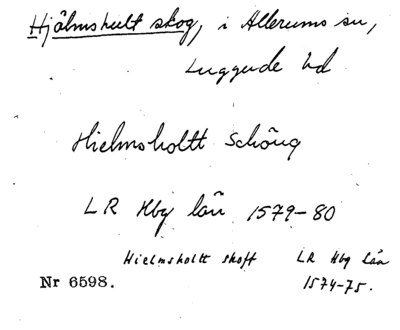 Hjälmshult skog, i Allerums sn,
Luggude hd
Hielmsholtt Schoug
LR Hbg län 1579-80
Hielmsholtt skoft LR Hbg län
Nr 6598. 1574-75.